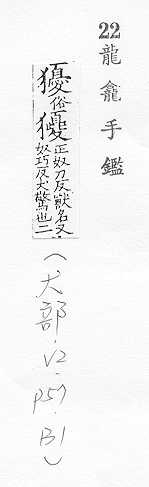 22 龍龕手鑑
獶俗獿正奴刀反獸名又
奴巧反犬驚也二
(犬部.V2.P57.B1)